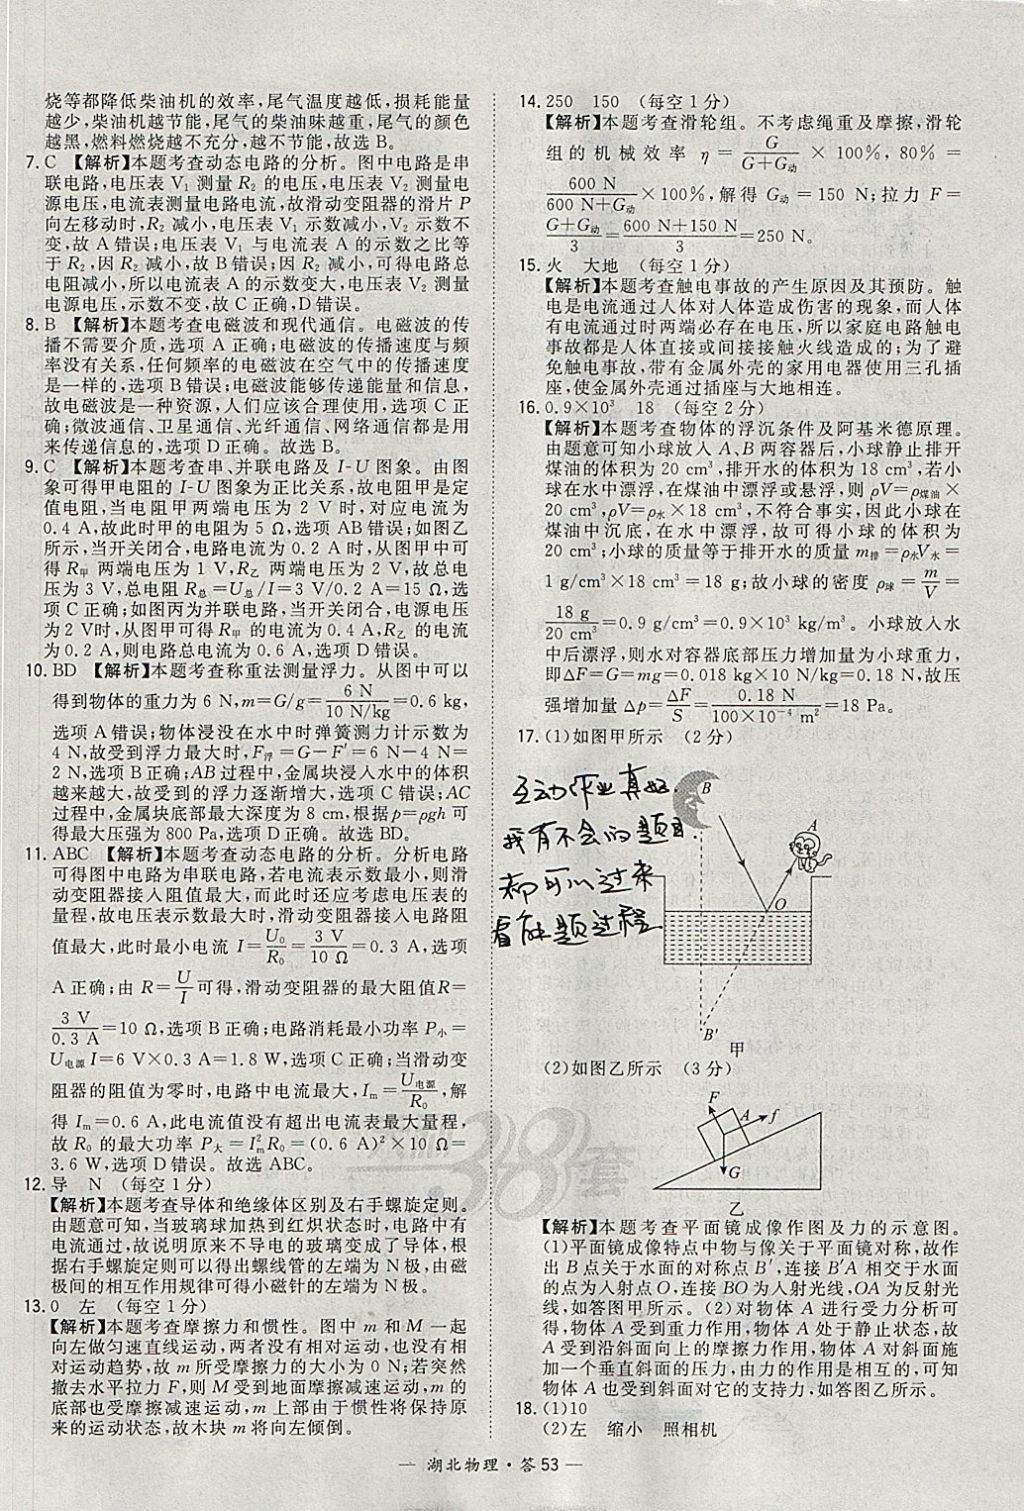 烧等都降低柴油机的效率,尾气温度越低,损耗能量
越少,柴油机越节能,尾气的柴油味越重,尾气的颜色
越黑,燃料燃烧越不充分,越不节能,故选 B。
7. C 【解析】本题考查动态电路的分析。图中电路是串
联电路,电压表 V₁ 测量 R₂ 的电压,电压表 V₂ 测量电
源电压,电流表测量电路电流,故滑动变阻器的滑片 P
向左移动时,R₂ 减小,电压表 V₁ 示数减小,V₂ 示数不
变,故 A 错误;电压表 V₁ 与电流表 A 的示数之比等
于 R₂,因 R₂ 减小,故 B 错误;因 R₂ 减小,可得电路总
电阻减小,所以电流表 A 的示数变大,电压表 V₂ 测量
电源电压,示数不变,故 C 正确,D 错误。
8. B 【解析】本题考查电磁波和现代通信。电磁波的传
播不需要介质,选项 A 正确;电磁波的传播速度与频
率没有关系,任何频率的电磁波在空气中的传播速度
是一样的,选项 B 错误;电磁波能够传递能量和信息,
故电磁波是一种资源,人们应该合理使用,选项 C 正
确;微波通信、卫星通信、光纤通信、网络通信都是用
来传递信息的,选项 D 正确。故选 B。
9. C 【解析】本题考查串、并联电路及 I-U 图象。由图
象可得甲电阻的 I-U 图象为正比关系,故电阻甲是定
值电阻,当电阻甲两端电压为 2 V 时,对应电流为
0.4 A,故此时甲的电阻为 5 Ω,选项 AB 错误;如图乙
所示,当开关闭合,电路电流为 0.2 A 时,从图甲中可
得 R甲 两端电压为 1 V,R乙 两端电压为 2 V,故总电
压为 3 V,总电阻 R总=U总/I=3 V/0.2 A=15 Ω,选
项 C 正确;如图丙为并联电路,当开关闭合,电源电压
为 2 V时,从图甲可得 R甲 的电流为 0.4 A,R乙 的电流
为 0.2 A,则电路总电流为 0.6 A,选项 D 错误。
10. BD 【解析】本题考查称重法测量浮力。从图中可以
得到物体的重力为 6 N,m=G/g=6 N/10 N/kg=0.6 kg,
选项 A 错误;物体浸没在水中时弹簧测力计示数为
4 N,故受到浮力最大时,F浮=G-F′=6 N-4 N=
2 N,选项 B 正确;AB 过程中,金属块浸入水中的体积
越来越大,故受到的浮力逐渐增大,选项 C 错误;AC
过程中,金属块底部最大深度为 8 cm,根据 p=ρgh 可
得最大压强为 800 Pa,选项 D 正确。故选 BD。
11. ABC 【解析】本题考查动态电路的分析。分析电路
可得图中电路为串联电路,若电流表示数最小,则滑
动变阻器接入阻值最大,而此时还应考虑电压表的
量程,故电压表示数最大时,滑动变阻器接入电路阻
值最大,此时最小电流 I=U₀/R₀=3 V/10 Ω=0.3 A,选项
A 正确;由 R=U/I可得,滑动变阻器的最大阻值R=
3 V/0.3 A=10 Ω,选项 B 正确;电路消耗最小功率 P小=
U电源 I=6 V×0.3 A=1.8 W,选项 C 正确;当滑动变
阻器的阻值为零时,电路中电流最大,Iₘ=U电源/R₀,解
得 Iₘ=0.6 A,此电流值没有超出电流表最大量程,
故 R₀ 的最大功率 P大=Iₘ²R₀=(0.6 A)²×10 Ω=
3.6 W,选项 D 错误。故选 ABC。
12. 导 N (每空 1 分)
【解析】本题考查导体和绝缘体区别及右手螺旋定则。
由题意可知,当玻璃球加热到红炽状态时,电路中有
电流通过,故说明原来不导电的玻璃变成了导体,根
据右手螺旋定则可以得出螺线管的左端为 N 极,由磁
极间的相互作用规律可得小磁针的左端为 N 极。
13. 0 左 (每空 1 分)
【解析】本题考查摩擦力和惯性。图中 m 和 M 一起
向左做匀速直线运动,两者没有相对运动,也没有相
对运动趋势,故 m 所受摩擦力的大小为 0 N;若突然
撤去水平拉力 F,则 M 受到地面摩擦减速运动,m 的
底部也受摩擦减速运动,m 上部由于惯性将保持原
来的运动状态,故木块 m 将向左倾倒。
14. 250 150 (每空 1 分)
【解析】本题考查滑轮组。不考虑绳重及摩擦,滑轮
组的机械效率 η=G/G+G动×100%,80%=
600 N/600 N+G动×100%,解得 G动=150 N;拉力 F=
G+G动/3=600 N+150 N/3=250 N。
15. 火 大地 (每空 1 分)
【解析】本题考查触电事故的产生原因及其预防。触
电是电流通过人体对人体造成伤害的现象,而人体
有电流通过时两端必存在电压,所以家庭电路触电
事故都是人体直接或间接接触火线造成的;为了避
免触电事故,带有金属外壳的家用电器使用三孔插
座,使金属外壳通过插座与大地相连。
16. 0.9×10³ 18 (每空 2 分)
【解析】本题考查物体的浮沉条件及阿基米德原理。
由题意可知小球放入 A、B 两容器后,小球静止排开
煤油的体积为 20 cm³,排开水的体积为 18 cm³,若小
球在水中漂浮,在煤油中漂浮或悬浮,则 ρV=ρ煤油×
20 cm³,ρV=ρ水×18 cm³,不符合事实,因此小球在
煤油中沉底,在水中漂浮,故可得小球的体积为
20 cm³;小球的质量等于排开水的质量 m排=ρ水V水=
1 g/cm³×18 cm³=18 g;故小球的密度 ρ球=m/V=
18 g/20 cm³=0.9 g/cm³=0.9×10³ kg/m³。小球放入水
中后漂浮,则水对容器底部压力增加量为小球重力,
即ΔF=G=mg=0.018 kg×10 N/kg=0.18 N,故压
强增加量 Δp=ΔF/S=0.18 N/100×10⁻⁴ m²=18 Pa。
17. (1)如图甲所示 (2 分)
互动作业真好.
我有不会的题目
都可以过来
看解题过程
B
A
O
B′
甲
(2)如图乙所示 (3 分)
F
A
f
G
乙
【解析】本题考查平面镜成像作图及力的示意图。
(1)平面镜成像特点中物与像关于平面镜对称,故作
出 B 点关于水面的对称点 B′,连接 B′A 相交于水面
的点为入射点 O,连接 BO 为入射光线,OA 为反射光
线,如答图甲所示。(2)对物体 A 进行受力分析可
得,物体 A 受到重力作用,物体 A 处于静止状态,故
A 受到沿斜面向上的摩擦力作用,物体 A 对斜面施
加一个垂直斜面的压力,由力的作用是相互的,可知
物体 A 也受到斜面对它的支持力,如答图乙所示。
18. (1)10
(2)左 缩小 照相机
天利38套
— 湖北物理·答 53 —